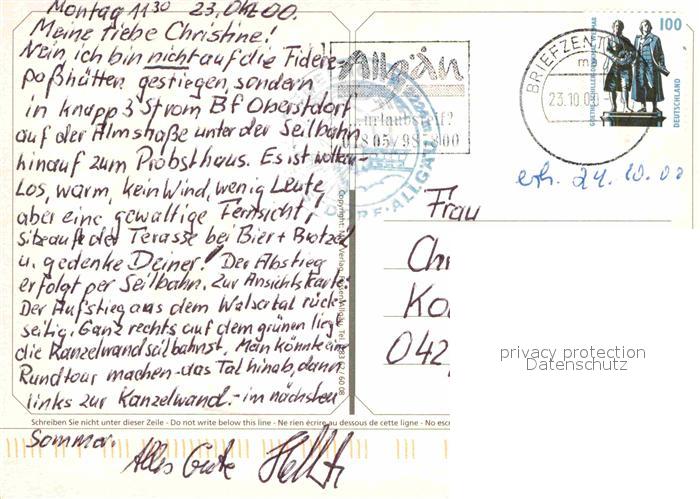 Montag 11³⁰ 23. Okt 00.
Meine liebe Christine!
Nein, ich bin nicht auf die Fidere-
paßhütten gestiegen, sondern
in knapp 3 St vom Bf Oberstdorf
auf der Almstraße unter der Seilbahn
hinauf zum Probsthaus. Es ist wolken-
los, warm, kein Wind, wenig Leute,
aber eine gewaltige Fernsicht,
sitze auf der Terasse bei Bier + Brotzeit
u. gedenke Deiner! Der Abstieg
erfolgt per Seilbahn. Zur Ansichtskarte:
Der Aufstieg aus dem Walsertal rück-
seitig. Ganz rechts auf dem grünen liegt
die Kanzelwandseilbahnst. Man könnte eine
Rundtour machen - das Tal hinab, dann
links zur Kanzelwand. - im nächsten
Schreiben Sie nicht unter dieser Zeile - Do not write below this line - Ne rien écrire au dessous de cette ligne - No esc
Sommer.
Alles Gute
Allgäu
urlaubsreif?
BRIEFZENT
23.10.00
100
DEUTSCHLAND
ALLGÄU
erh. 24.10.00
Frau
Ch
Ko
042
privacy protection
Datenschutz